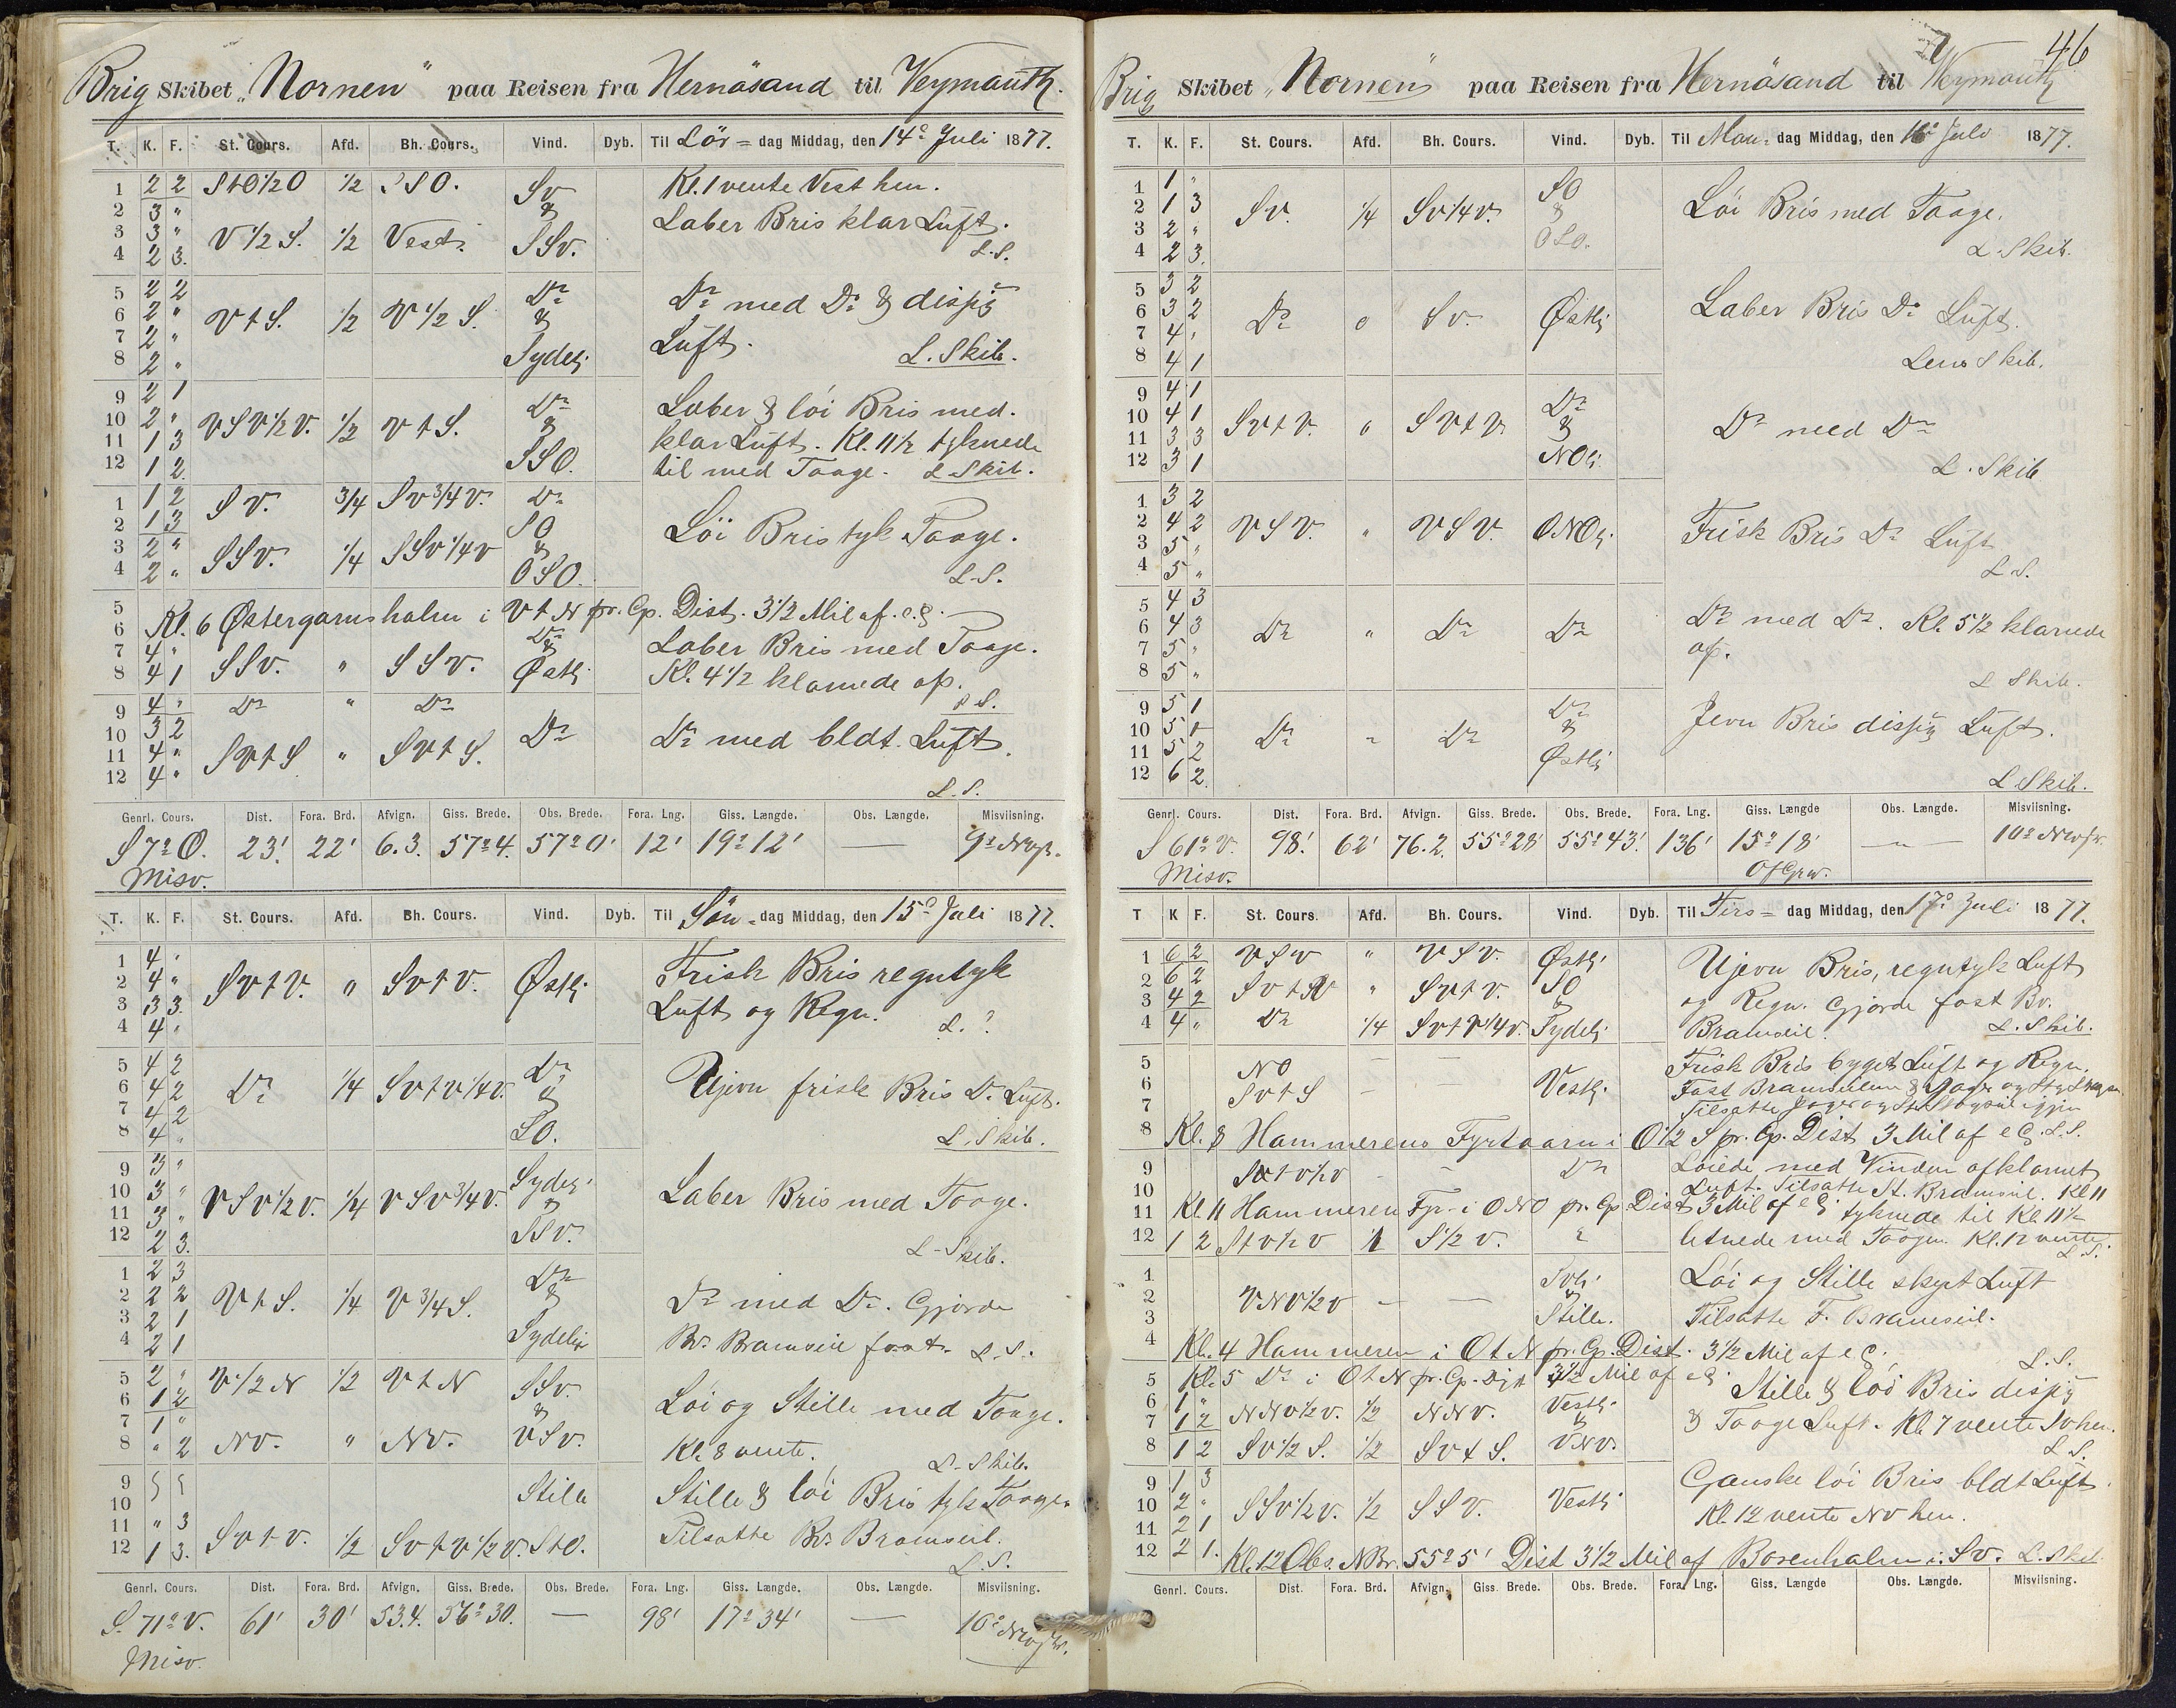 Brig Skibet „Nornen" paa Reisen fra Hernösand til Veymauth.
T. K. F. St. Cours. Afd. Bh. Cours. Vind. Dyb. Til Lör= dag Middag, den 14de Juli 1877.
1 2 2 StO1/2O 1/2 SSO. Sv Kl. 1 vente Vest hen.
2 3 " & Laber Bris klar Luft.
3 3 " V 1/2 S. 1/2 Vest. SSv.
4 2 3. L.S.
5 2 2 Do Do med Do & disig
6 2 " V t S. 1/2 V 1/2 S. &
7 2 " Luft.
8 2 " Sydlig L. Skib.
9 2 1 Do Laber & löi Bris med.
10 2 " VSV1/2V. 1/2 V t S. &
11 1 3 klar Luft. Kl. 11 1/2 tyknede
12 1 2. SSO. til med Taage. L Skib.
1 1 2 SV. 3/4 Sv3/4v. Do
2 1 3 SO Löi Bris tyk Taage.
3 2 " SSv. 1/4 SSv1/4v &
4 2 " OSO. L.S.
5
6 Kl. 6 Östergarnsholm i V t N pr. Cp. Dist. 3 1/2 Mil af. e.g.
7 4 " Do & Laber Bris med Taage.
8 4 1 SSv. " SSV. Østlig Kl. 4 1/2 klarnede op. L S.
9 4 " Do " Do
10 3 2 Do Do med bldt. Luft.
11 4 " SVtS " SVtS.
12 4 " L.S.
Genrl. Cours. Dist. Fora. Brd. Afvign. Giss. Brede. Obs. Brede. Fora. Lng. Giss. Længde. Obs. Længde. Misviisning.
S 7° O. 23' 22' 6.3. 57° 4. 57° 0' 12' 19° 12' — 9° NVp.
Misv.
T. K. F. St. Cours. Afd. Bh. Cours. Vind. Dyb. Til Sön= dag Middag, den 15de Juli 1877.
1 4 " Frisk Bris regntyk
2 4 " SvtV. " SvtV. Østlig
3 3 3. Luft og Regn.
4 4 " L. ?
5 4 2 Do
6 4 2 Do 1/4 Svtv1/4v. & Ujevn frisk Bris Do Luft.
7 4 2
8 4 " SO. L. Skib.
9 3 " Sydlig
10 3 " VSv1/2v. 1/4 VSv3/4v. & Laber Bris med Taage.
11 3 "
12 2 3. SSv. L-Skib.
1 2 3 Do
2 2 2 VtS. 1/4 V3/4S. & Do med Do. Gjorde
3 2 1
4 2 1 Sydlig Br. Bramseil fast. L.S.
5 2 " V1/2N 1/2 VtN SSv.
6 1 2 & Löi og Stille med Taage.
7 1 "
8 " 2 NV. " NV. VSv. Kl. 8 vente. L-Skib.
9 Stille Stille & löi Bris tyk Taage.
10
11 " 3 Tilsatte Br. Bramseil.
12 1 3. Svtv. 1/2 Svtv1/2v. StO. L.S.
Genrl. Cours. Dist. Fora. Brd. Afvign. Giss. Brede. Obs. Brede. Fora. Lng. Giss. Længde. Obs. Længde. Misviisning.
S. 71° V. 61' 30' 53.4. 56° 30. — 98' 17° 34' — 10° NV
Misv.
46
Brig Skibet „Nornen" paa Reisen fra Hernösand til Veymauth
T. K. F. St. Cours. Afd. Bh. Cours. Vind. Dyb. Til Man= dag Middag, den 16de Juli 1877.
1 1 " SO
2 1 3 Sv. 1/4 Sv1/4v. & Löi Bris med Taage.
3 2 " OSO.
4 2 3. L. Skib.
5 3 2
6 3 2 Do " Sv. Østlig Laber Bris Do Luft.
7 4 "
8 4 1 Lens Skib.
9 4 1 Do
10 4 1 SvtV. " SVtV & Do med Do
11 3 3
12 3 1 NOlig L. Skib
1 3 2
2 4 2 VSV. " VSV. ONOlig Frisk Bris Do Luft
3 5 "
4 5 " L.S.
5 4 3 Do med Do. Kl. 5 1/2 klarnede
6 4 3 Do " Do Do
7 5 " op.
8 5 " L Skib.
9 5 1 Do
10 5 1 Do " Do & Jevn Bris disig Luft.
11 5 2
12 6 2. Østlig L Skib.
Genrl. Cours. Dist. Fora. Brd. Afvign. Giss. Brede. Obs. Brede. Fora. Lng. Giss. Længde Obs. Længde. Misviisning.
S 61° V. 98' 62' 76.2. 55° 28' 55° 43'. 136' 15° 18' — 10° NV
Misv. OfGrw.
T K F. St. Cours. Afd. Bh. Cours. Vind. Dyb. Til Tirs= dag Middag, den 17de Juli 1877.
1 6 2 VSv " VSV. Østlig Ujevn Bris, regntyk Luft
2 6 2 SvtV " Svtv. SO
3 4 2 & og Regn. Gjorde fast Br.
4 4 " Do 1/4 Svtv1/4v. Sydlig Bramseil. L. Skib.
5 NO — — Frisk Bris byget Luft og Regn.
6 SvtS — Vestlig Fast Bramseilene & Jager og St. Stags.
7 Tilsatte Jager og St. Stagseil igjen
8 Kl. 8 Hammerens Fyrtaarn i O1/2S pr. Cp. Dist 3 Mil af e G. L.S.
9 — Do Löiede med Vinden afklarnet
10 Luft. Tilsatte St. Bramseil. Kl 11
11 Kl. 11 Hammeren Fyr i ONO pr. Cp. Dist 3 Mil af e G. tyknede til Kl. 11 1/2
12 1 2 Stv1/2v 1 S1/2v. " letnede med Taagen. Kl. 12 vente. L.S.
1 Svlig Löi og Stille skyet Luft
2 VNV1/2V — — &
3 Stille. Tilsatte F. Bramseil.
4 Kl. 4 Hammeren i OtN pr. Cp. Dist. 3 1/2 Mil af e G. L.S.
5 Kl. 5 Do i OtN pr. Cp. Dist 3 1/2 Mil af e G. Stille & löi Bris disig
6 1 " NNv1/2v. 1/2 NNv. Vestlig
7 1 2 & & Taage Luft. Kl. 7 vente Sv hen.
8 1 2 Sv1/2S. 1/2 SvtS. VNV. L S.
9 1 3 Ganske löi Bris bldt Luft.
10 2 " SSv1/2v. 1/2 SSV. Vestlig
11 2 1 Kl. 12 vente NV hen.
12 2 1. Kl. 12 Obs. NBr. 55° 5' Dist 3 1/2 Mil af Borenholm i Sv. L. Skib
Genrl. Cours. Dist. Fora. Brd. Afvign. Giss. Brede. Obs. Brede. Fora. Lng. Giss. Længde Obs. Længde. Misviisning.